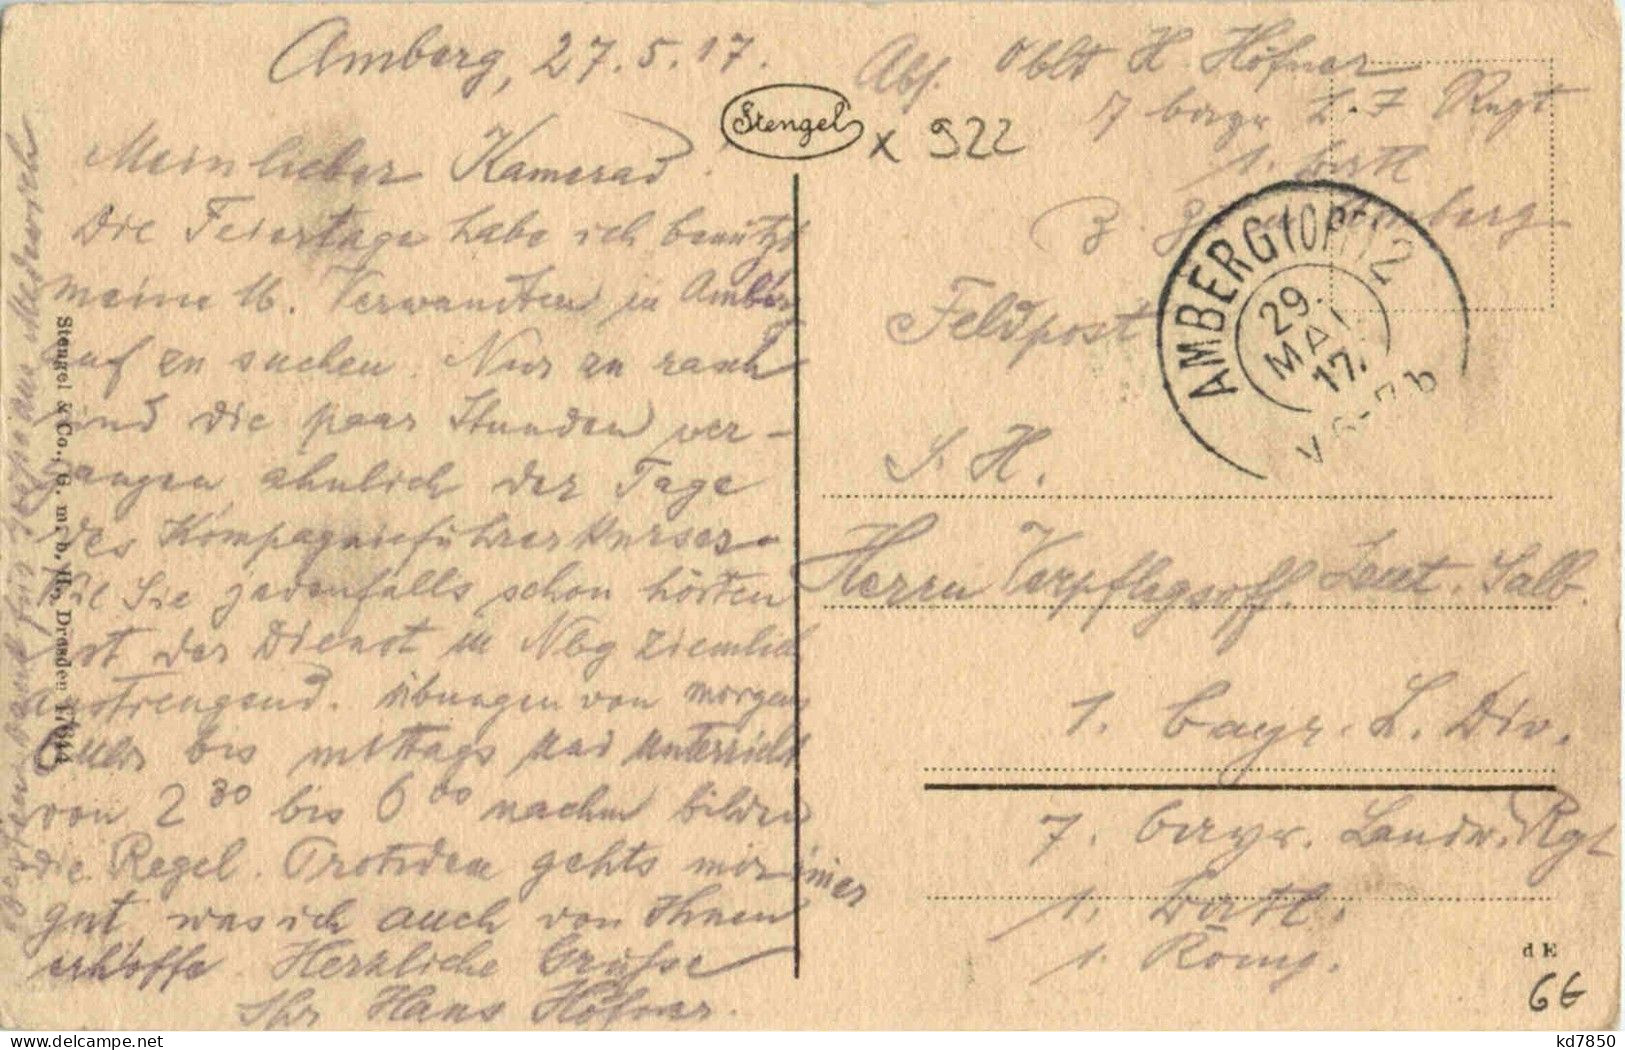 Amberg, 27.5.17.
Mein lieber Kamerad.
Die Feiertage habe ich benützt
meine u. Verwandten in Amberg
auf zu suchen. Nur zu rasch
sind die paar Stunden ver-
gangen ähnlich der Tage
des Kompagnieführerkurses.
Sie jedenfalls schon hörten
ist der Dienst in Nbg ziemlich
anstrengend. Übungen von morgens
bis mittags und Unterricht
von 2 30 bis 6 00 nachm bilden
die Regel. Trotzdem gehts mir immer
gut was ich auch von Ihnen
erhoffe. Herzliche Grüße
Ihr Hans Höfner.
Stengel & Co., G. m. b. H., Dresden
Stengel
x 922
Abs. Oblt H. Höfner
7 bayr L.I Regt
1. Batl
Amberg
AMBERG (OPF) 2
29.
MAI
17.
V 6-7 b
Feldpost
S. H.
Herrn Verpflegsoff. Leut. Salb.
1. bayr. L. Div.
7. bayr. Landw. Rgt
1. Batl.
1. Komp.
d E
6€
kd7850